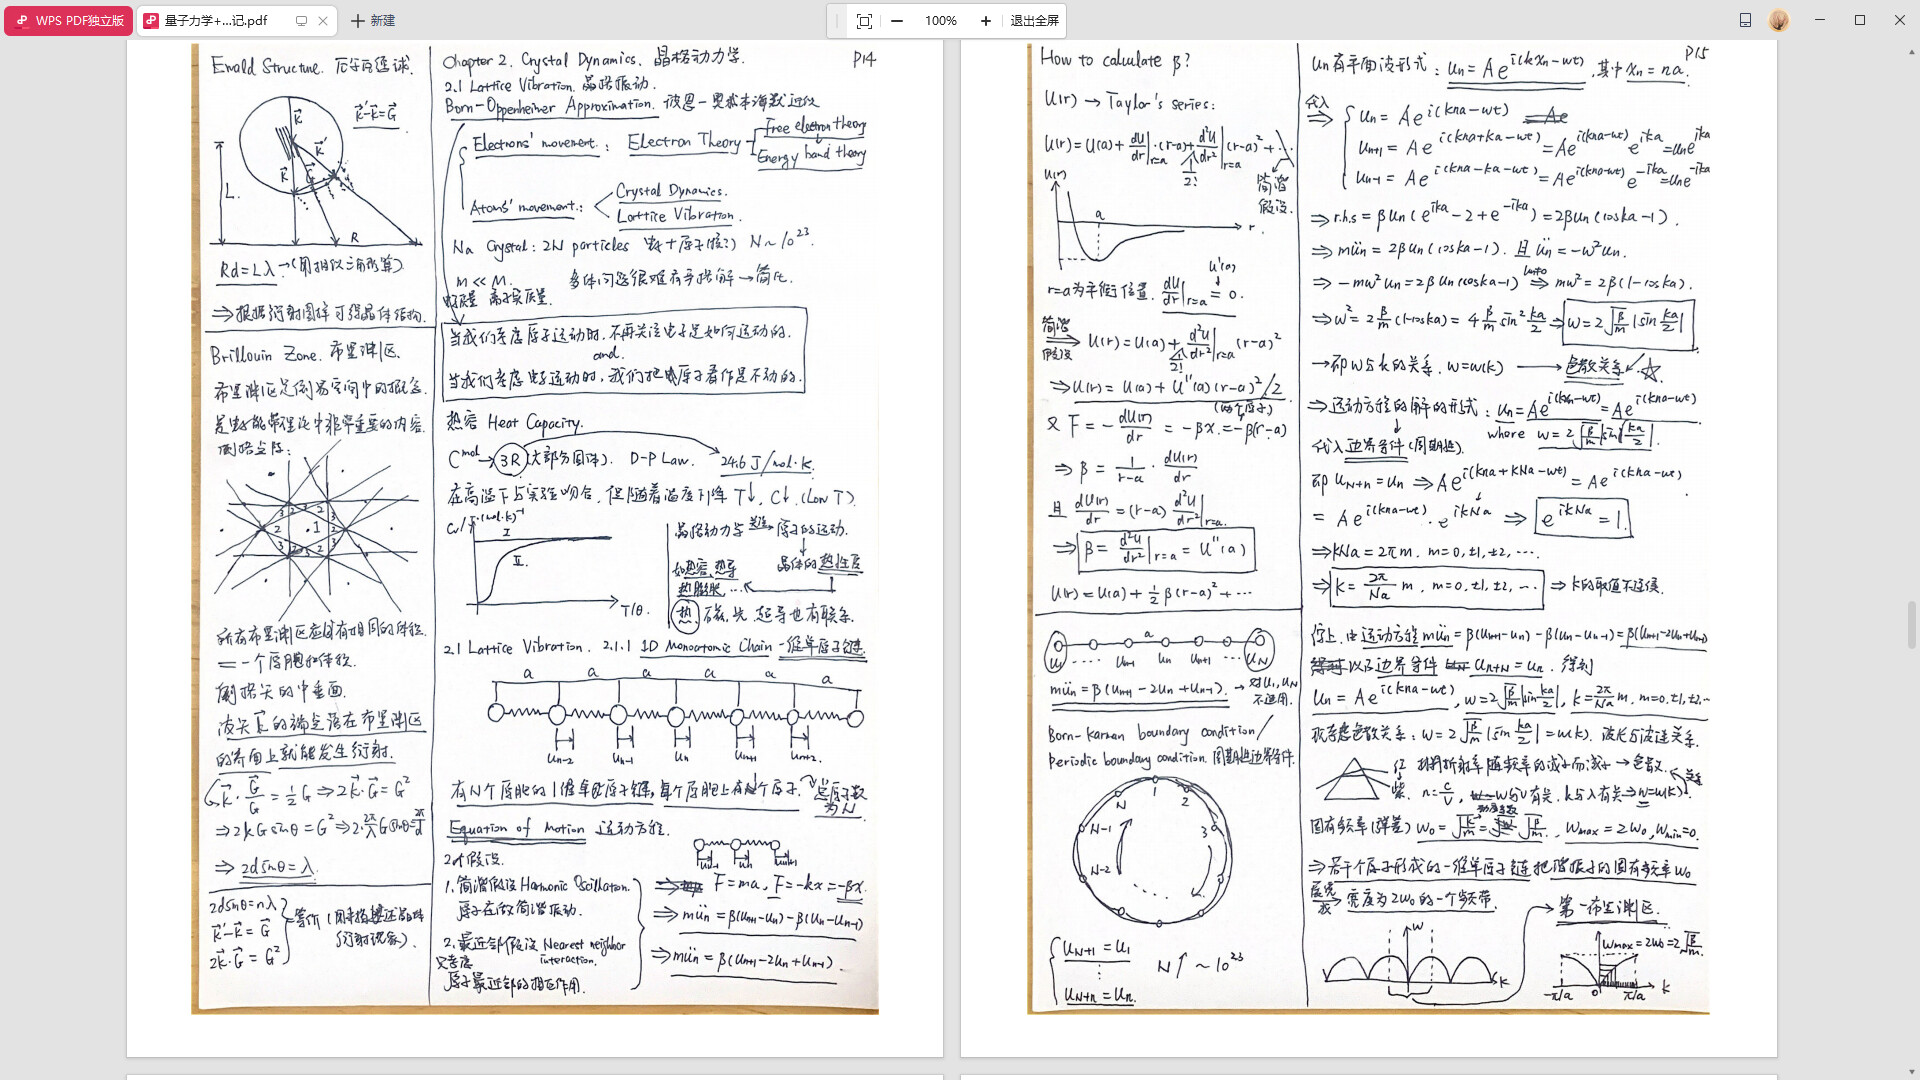 WPS PDF独立版
量子力学+...记.pdf
新建
100%
退出全屏
Ewald Structure. 厄尔瓦德球.
k⃗'-k⃗=G⃗
L.
R
Rd=Lλ →(用相似三角形算)
⇒根据衍射图样可得晶体结构.
Brillouin Zone. 布里渊区.
布里渊区是倒易空间中的概念.
是电子能带理论中非常重要的内容.
倒格点阵:
所有布里渊区应具有相同的体积.
=一个原胞的体积.
倒格矢的中垂面.
波矢k⃗的端点落在布里渊区
的界面上就能发生衍射.
k⃗·G⃗/G=1/2 G ⇒2k⃗·G⃗=G²
⇒ 2dsinθ=λ
2dsinθ=nλ
k⃗'-k⃗=G⃗
2k⃗·G⃗=G²
等价(用来描述晶体
衍射现象).
P14
Chapter 2. Crystal Dynamics. 晶格动力学.
2.1 Lattice Vibration. 晶格振动.
Born-Oppenheimer Approximation. 波恩-奥本海默近似
Electrons' movement: Electron Theory
Free electron theory
Energy band theory
Atoms' movement:
Crystal Dynamics.
Lattice Vibration.
Na Crystal: 2N particles N~10²³.
m≪M. 多体问题很难有严格解→简化.
电子质量 离子实质量.
当我们考虑原子运动时,不再关注电子是如何运动的.
and.
当我们考虑电子运动时,我们把原子看作是不动的.
热容 Heat Capacity.
C^mol→3R(大部分固体). D-P Law. 24.6 J/mol·K.
在高温下与实验吻合,但随着温度下降 T↓, C↓. (Low T)
Cv/J·(mol·K)⁻¹
I
II.
T/θ.
晶格动力学 关注→原子的运动.
晶体的热性质
如热容,热导
热膨胀,...
热 磁,光,超导也有联系.
2.1 Lattice Vibration. 2.1.1 1D Monoatomic Chain 一维单原子链.
a a a a a a
Un-2 Un-1 Un Un+1 Un+2
有N个原胞的1维单原子链,每个原胞上有1个原子. 总原子数
为N
Equation of Motion 运动方程.
2个假设.
1.简谐假设 Harmonic Oscillation.
原子在做简谐振动.
⇒ F=ma, F=-kx=-βx.
⇒ mün=β(Un+1-Un)-β(Un-Un-1)
2.最近邻假设 Nearest neighbor
interaction.
只考虑
原子最近邻的相互作用.
⇒mün=β(Un+1-2Un+Un-1).
P15
How to calculate β?
U(r)→Taylor's series:
U(r)=U(a)+dU/dr|r=a·(r-a)+1/2! d²U/dr²|r=a(r-a)²+...
简谐
假设.
U(r)
a
r.
U'(a)
r=a为平衡位置. dU/dr|r=a=0.
简谐
假设
⇒ U(r)=U(a)+1/2! d²U/dr²|r=a(r-a)²
⇒U(r)=U(a)+U''(a)(r-a)²/2
(两个原子)
又 F=-dU(r)/dr=-βx=-β(r-a)
⇒β=1/(r-a)·dU(r)/dr
且 dU(r)/dr=(r-a)d²U/dr²|r=a
⇒β=d²U/dr²|r=a=U''(a)
U(r)=U(a)+1/2 β(r-a)²+...
a
U1 .... Un-1 Un Un+1 ... UN
mün=β(Un+1-2Un+Un-1). →对U1,UN
不适用.
Born-Karman boundary condition/
Periodic boundary condition. 周期性边界条件.
N 1 2
N-1 3
N-2
UN+1=U1
⋮
UN+n=Un.
N↑~10²³
Un有平面波形式: Un=Ae^i(kxn-wt),其中xn=na.
代入
⇒ Un=Ae^i(kna-wt)
Un+1=Ae^i(kna+ka-wt)=Ae^i(kna-wt)e^ika=Une^ika
Un-1=Ae^i(kna-ka-wt)=Ae^i(kna-wt)e^-ika=Une^-ika
⇒r.h.s=βUn(e^ika-2+e^-ika)=2βUn(coska-1).
⇒mün=2βUn(coska-1).且ün=-w²Un.
⇒-mw²Un=2βUn(coska-1) Un≠0⇒ mw²=2β(1-coska).
⇒w²=2β/m(1-coska)=4β/m sin²ka/2⇒w=2√β/m|sin ka/2|
→即w与k的关系. w=w(k)→色散关系 ☆
⇒运动方程的解的形式: Un=Ae^i(kxn-wt)=Ae^i(kna-wt)
where w=2√β/m|sin ka/2|.
代入边界条件(周期性).
即UN+n=Un ⇒Ae^i(kna+kNa-wt)=Ae^i(kna-wt).
=Ae^i(kna-wt)·e^ikNa⇒e^ikNa=1.
⇒kNa=2πm. m=0,±1,±2,....
⇒k=2π/Na m, m=0,±1,±2,...⇒k的取值不连续.
综上,由运动方程mün=β(Un+1-Un)-β(Un-Un-1)=β(Un+1-2Un+Un-1)
以及边界条件 UN+n=Un. 得到
Un=Ae^i(kna-wt), w=2√β/m|sin ka/2|, k=2π/Na m. m=0,±1,±2...
现考虑色散关系: w=2√β/m|sin ka/2|=w(k).
红
紫.
→色散
n=c/v, w与v有关. k与λ有关⇒w=w(k).
固有频率(弹簧) w0=√k/m=√β/m., wmax=2w0, wmin=0.
⇒若干个原子形成的一维单原子链把谐振子的固有频率w0
展宽
成→ 宽度为2w0的一个频带.
→第一布里渊区.
w
k
wmax=2w0=2√β/m.
-π/a 0 π/a k